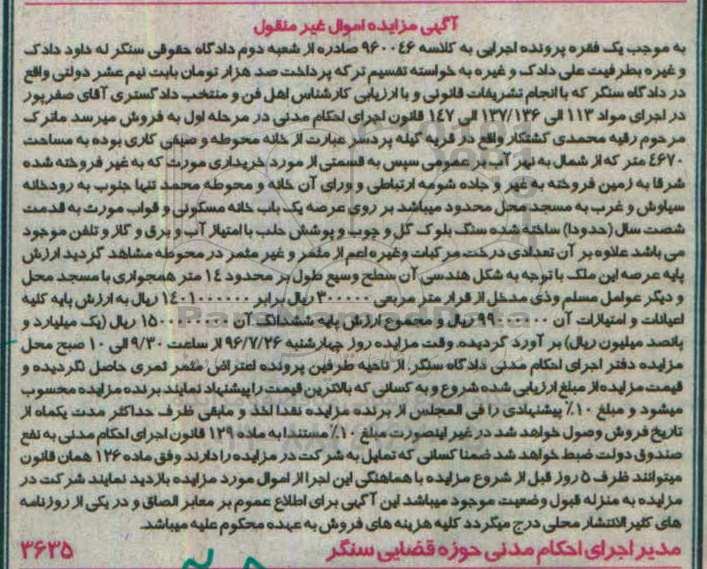 آگهی مزایده اموال غیر منقول
به موجب یک فقره پرونده اجرایی به کلاسه ۹۶۰۰۴۶ صادره از شعبه دوم دادگاه حقوقی سنگر له داود دادک
و غیره بطرفیت علی دادک و غیره به خواسته تقسیم ترکه پرداخت صد هزار تومان بابت نیم عشر دولتی واقع
در دادگاه سنگر که با انجام تشریفات قانونی و با ارزیابی کارشناس اهل فن و منتخب دادگستری آقای صفرپور
در اجرای مواد ۱۱۳ الی ۱۳۷/۱۳۶ الی ۱۴۷ قانون اجرای احکام مدنی در مرحله اول به فروش میرسد ماترک
مرحوم رقیه محمدی کشتکار واقع در قریه گیله پردسر عبارت از خانه محوطه و صیفی کاری بوده به مساحت
۴۶۷۰ متر که از شمال به نهر آب بر عمومی سپس به قسمتی از مورد خریداری مورث که به غیر فروخته شده
شرقا به زمین فروخته به غیر و جاده شوسه ارتباطی و ورای آن خانه و محوطه محمد تنها جنوب به رودخانه
سیاوش و غرب به مسجد محل محدود میباشد بر روی عرصه یک باب خانه مسکونی و قواب مورث به قدمت
شصت سال (حدودا) ساخته شده سنگ بلوک گل و چوب و پوشش حلب با امتیاز آب و برق و گاز و تلفن موجود
می باشد علاوه بر آن تعدادی درخت مرکبات وغیره اعم از مثمر و غیر مثمر در محوطه مشاهد گردید ارزش
پایه عرصه این ملک با توجه به شکل هندسی آن سطح وسیع طول بر محدود ۱۴ متر همجواری با مسجد محل
و دیگر عوامل مسلم وذی مدخل از قرار متر مربعی ۳۰۰۰۰۰ ریال برابر ۱۴۰۱۰۰۰۰۰۰ ریال به ارزش پایه کلیه
اعیانات و امتیازات آن ۹۹۰۰۰۰۰۰ ریال و مجموع ارزش پایه ششدانگ آن ۱۵۰۰۰۰۰۰۰۰ ریال (یک میلیارد و
پانصد میلیون ریال) بر آورد گردیده، وقت مزایده روز چهارشنبه ۹۶/۷/۲۶ از ساعت ۹/۳۰ الی ۱۰ صبح محل
مزایده دفتر اجرای احکام مدنی دادگاه سنگر، از ناحیه طرفین پرونده اعتراض مثمر ثمری حاصل نگردیده و
قیمت مزایده از مبلغ ارزیابی شده شروع و به کسانی که بالاترین قیمت را پیشنهاد نمایند برنده مزایده محسوب
میشود و مبلغ ۱۰٪ پیشنهادی را فی المجلس از برنده مزایده نقدا اخذ و مابقی ظرف حداکثر مدت یکماه از
تاریخ فروش وصول خواهد شد در غیر اینصورت مبلغ ۱۰٪ مستندا به ماده ۱۲۹ قانون اجرای احکام مدنی به نفع
صندوق دولت ضبط خواهد شد ضمنا کسانی که تمایل به شرکت در مزایده را دارند وفق ماده ۱۲۶ همان قانون
میتوانند ظرف ۵ روز قبل از شروع مزایده با هماهنگی این اجرا از اموال مورد مزایده بازدید نمایند شرکت در
مزایده به منزله قبول وضعیت موجود میباشد این آگهی برای اطلاع عموم بر معابر الصاق و در یکی از روزنامه
های کثیر الانتشار محلی درج میگردد کلیه هزینه های فروش به عهده محکوم علیه میباشد.
مدیر اجرای احکام مدنی حوزه قضایی سنگر ۳۶۳۵
ParsNamadData